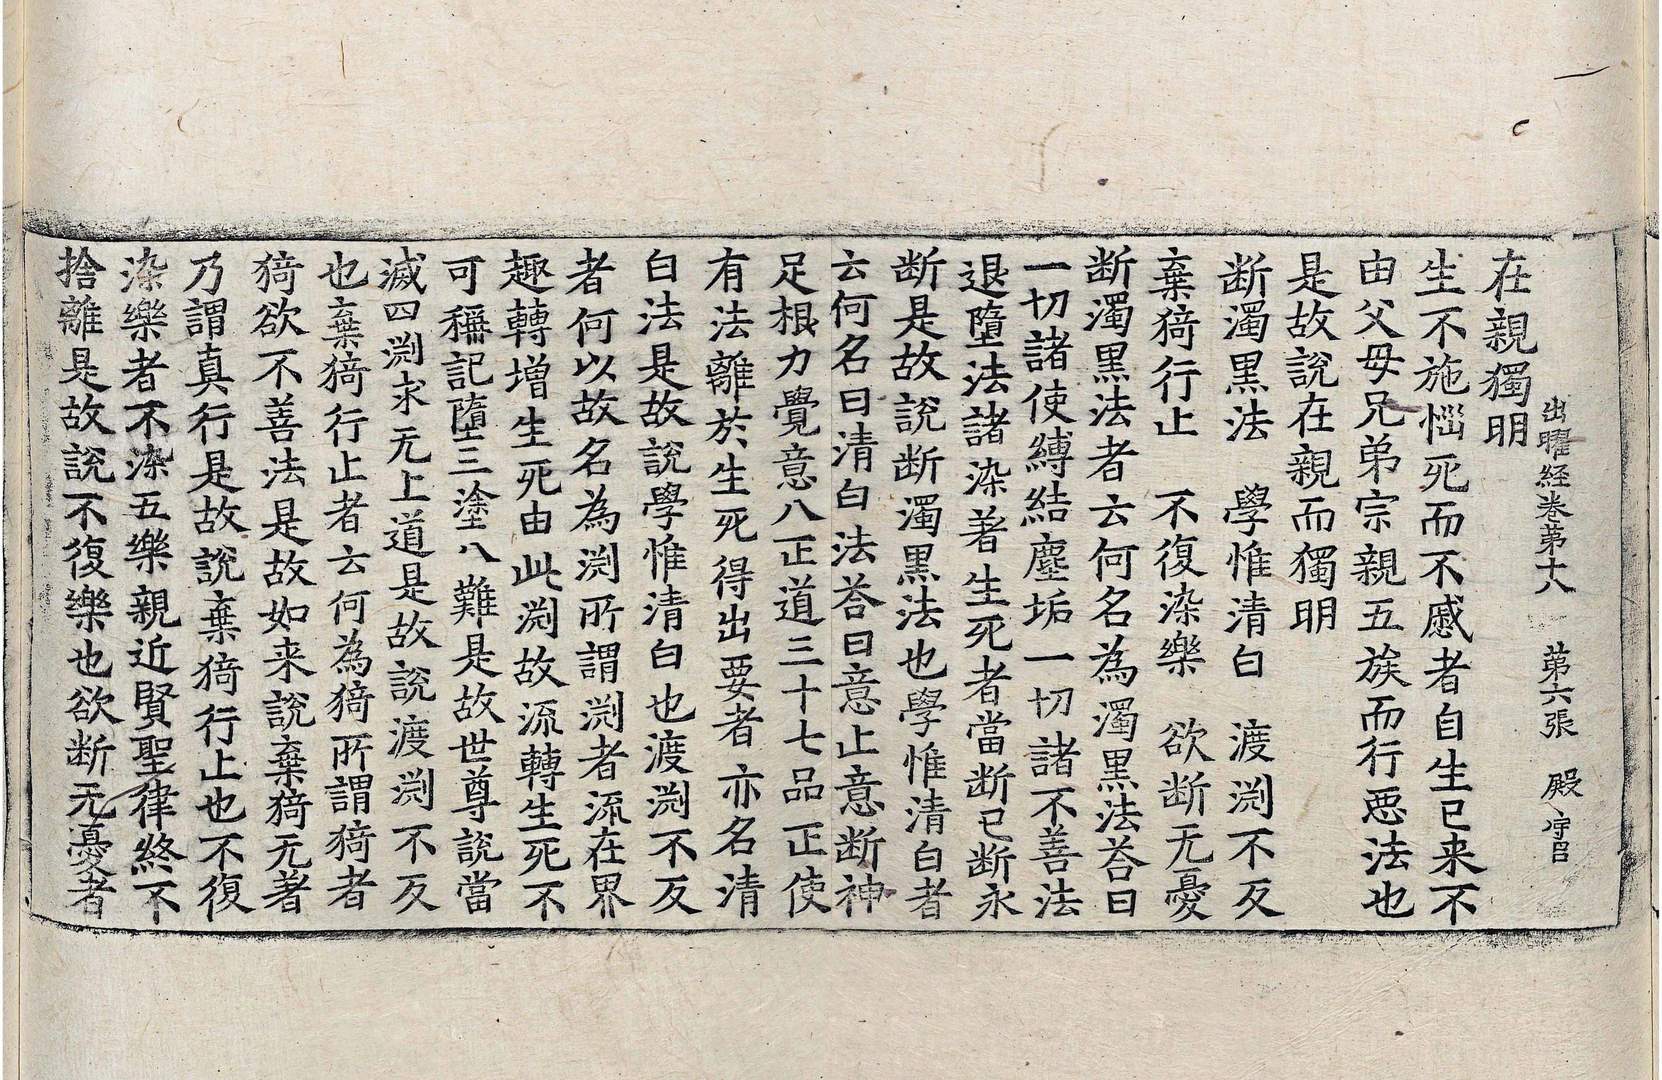 出曜経卷第十八　第六張　殿
在親獨明
生不施惱死而不慼者自生已来不
由父母兄弟宗親五族而行惡法也
是故說在親而獨明
断濁黒法　學惟清白　渡渕不反
棄猗行止　不復染樂　欲断无憂
断濁黒法者云何名為濁黒法荅曰
一切諸使縛結塵垢一切諸不善法
退墮法諸染著生死者當断已断永
断是故說断濁黒法也學惟清白者
云何名曰清白法荅曰意止意断神
足根力覺意八正道三十七品正使
有法離於生死得出要者亦名清
白法是故說學惟清白也渡渕不反
者何以故名為渕所謂渕者流在界
趣轉增生死由此渕故流轉生死不
可稱記墮三塗八難是故世尊說當
滅四渕求无上道是故說渡渕不反
也棄猗行止者云何為猗所謂猗者
猗欲不善法是故如来說棄猗无著
乃謂真行是故說棄猗行止也不復
染樂者不染五樂親近賢聖律終不
捨離是故說不復樂也欲断无憂者